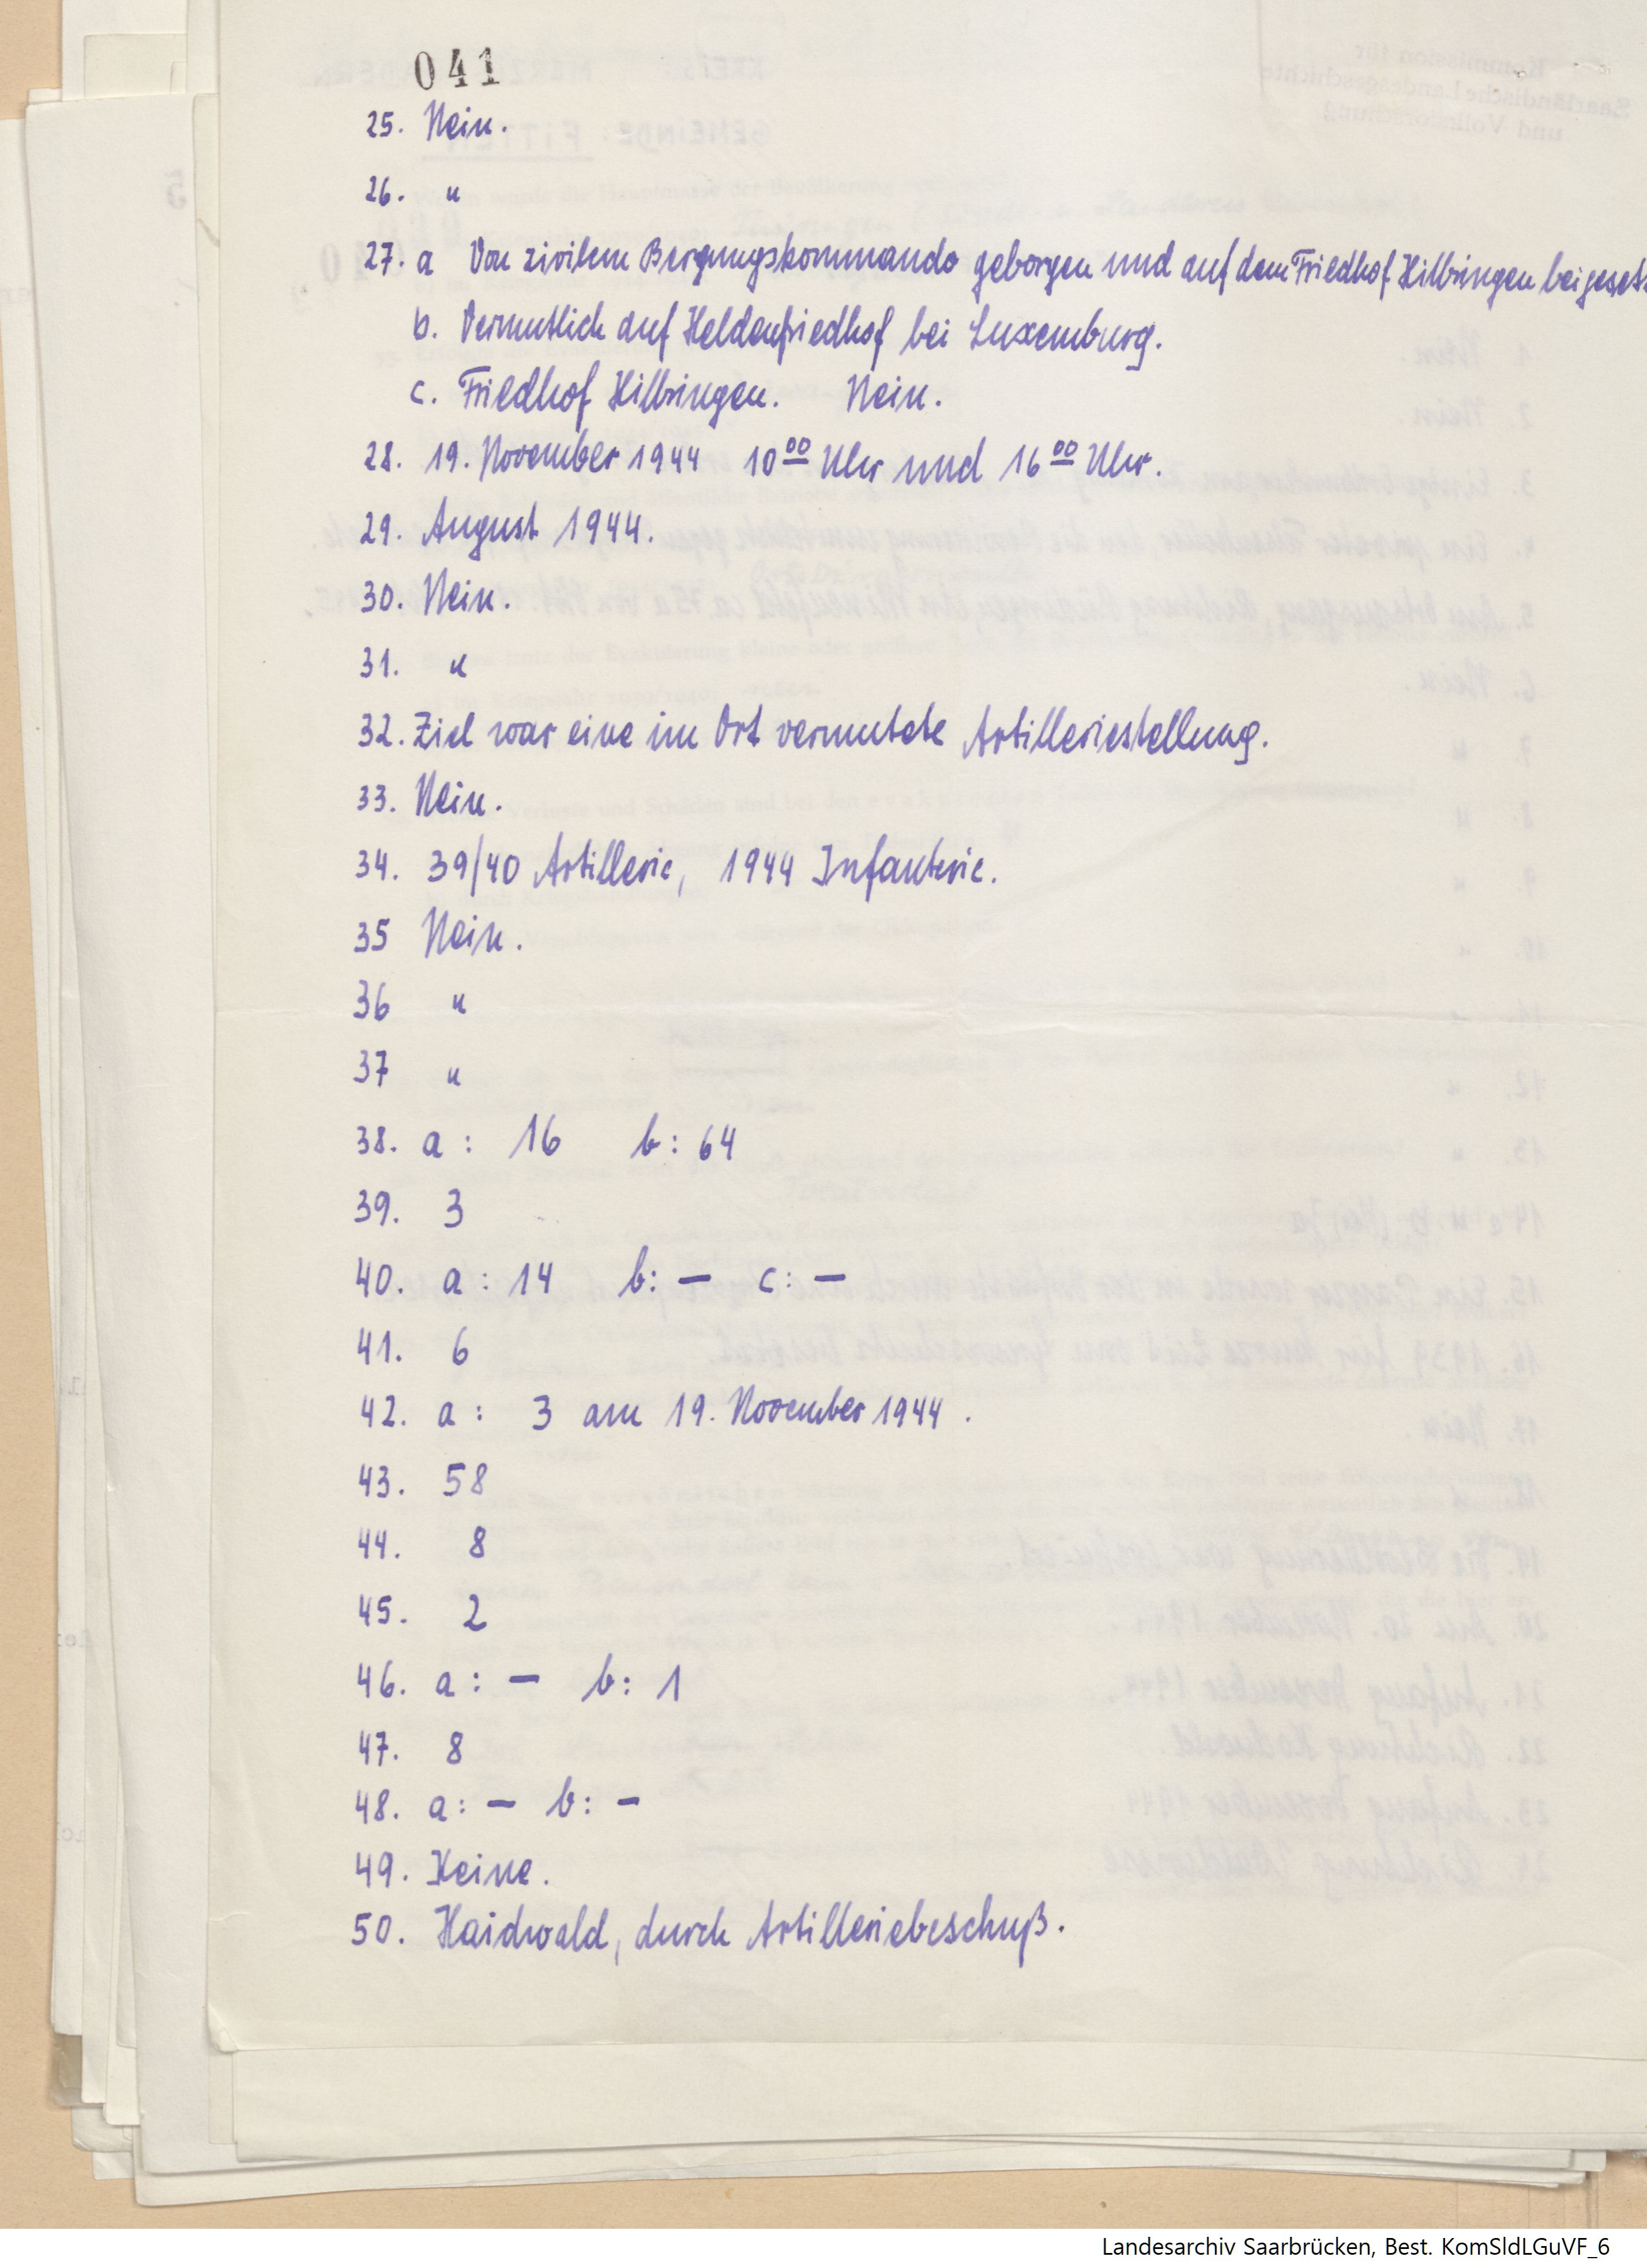 041
25. Nein.
26. "
27. a Von zivilem Bergungskommando geborgen und auf dem Friedhof Hilbringen beigesetz
b. Vermutlich auf Heldenfriedhof bei Luxemburg.
c. Friedhof Hilbringen. Nein.
28. 19. November 1944 10 00 Uhr und 16 00 Uhr.
29. August 1944.
30. Nein.
31. "
32. Ziel war eine im Ort vermutete Artilleriestellung.
33. Nein.
34. 39/40 Artillerie, 1944 Infanterie.
35 Nein.
36 "
37 "
38. a: 16 b: 64
39. 3
40. a: 14 b: — c: —
41. 6
42. a: 3 am 19. November 1944.
43. 58
44. 8
45. 2
46. a: — b: 1
47. 8
48. a: — b: —
49. Keine.
50. Haidwald, durch Artilleriebeschuß.
Landesarchiv Saarbrücken, Best. KomSldLGuVF_6